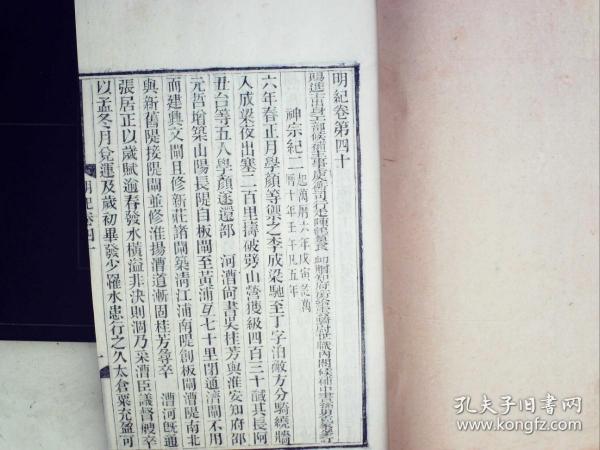 明紀卷第四十
賜進士出身工部候補主事虞衡司行走陳鶴纂
神宗紀二 起萬曆六年戊寅訖萬
曆十年壬午凡五年
六年春正月學顏等禦之李成梁馳至丁字泊敵方分騎繞牆
入成梁夜出塞二百里擣破劈山營獲級四百三十馘其長阿
丑台等五人學顏遂還部 河漕尚書吳桂芳與淮安知府邵
元哲增築山陽長隄自板閘至黃浦亙七十里閉通濟閘不用
而建興文閘且修新莊諸閘築清江浦南隄創板閘漕隄南北
與新舊隄接隄閘並修淮揚漕道漸固桂芳尋卒 漕河旣通
張居正以歲賦逾春發水橫溢非決則涸乃采漕臣議督艘卒
以孟冬月兌運及歲初畢發少罹水患行之久太倉粟充盈可
明紀卷四十 一
孔夫子旧书网
www.kongfz.com